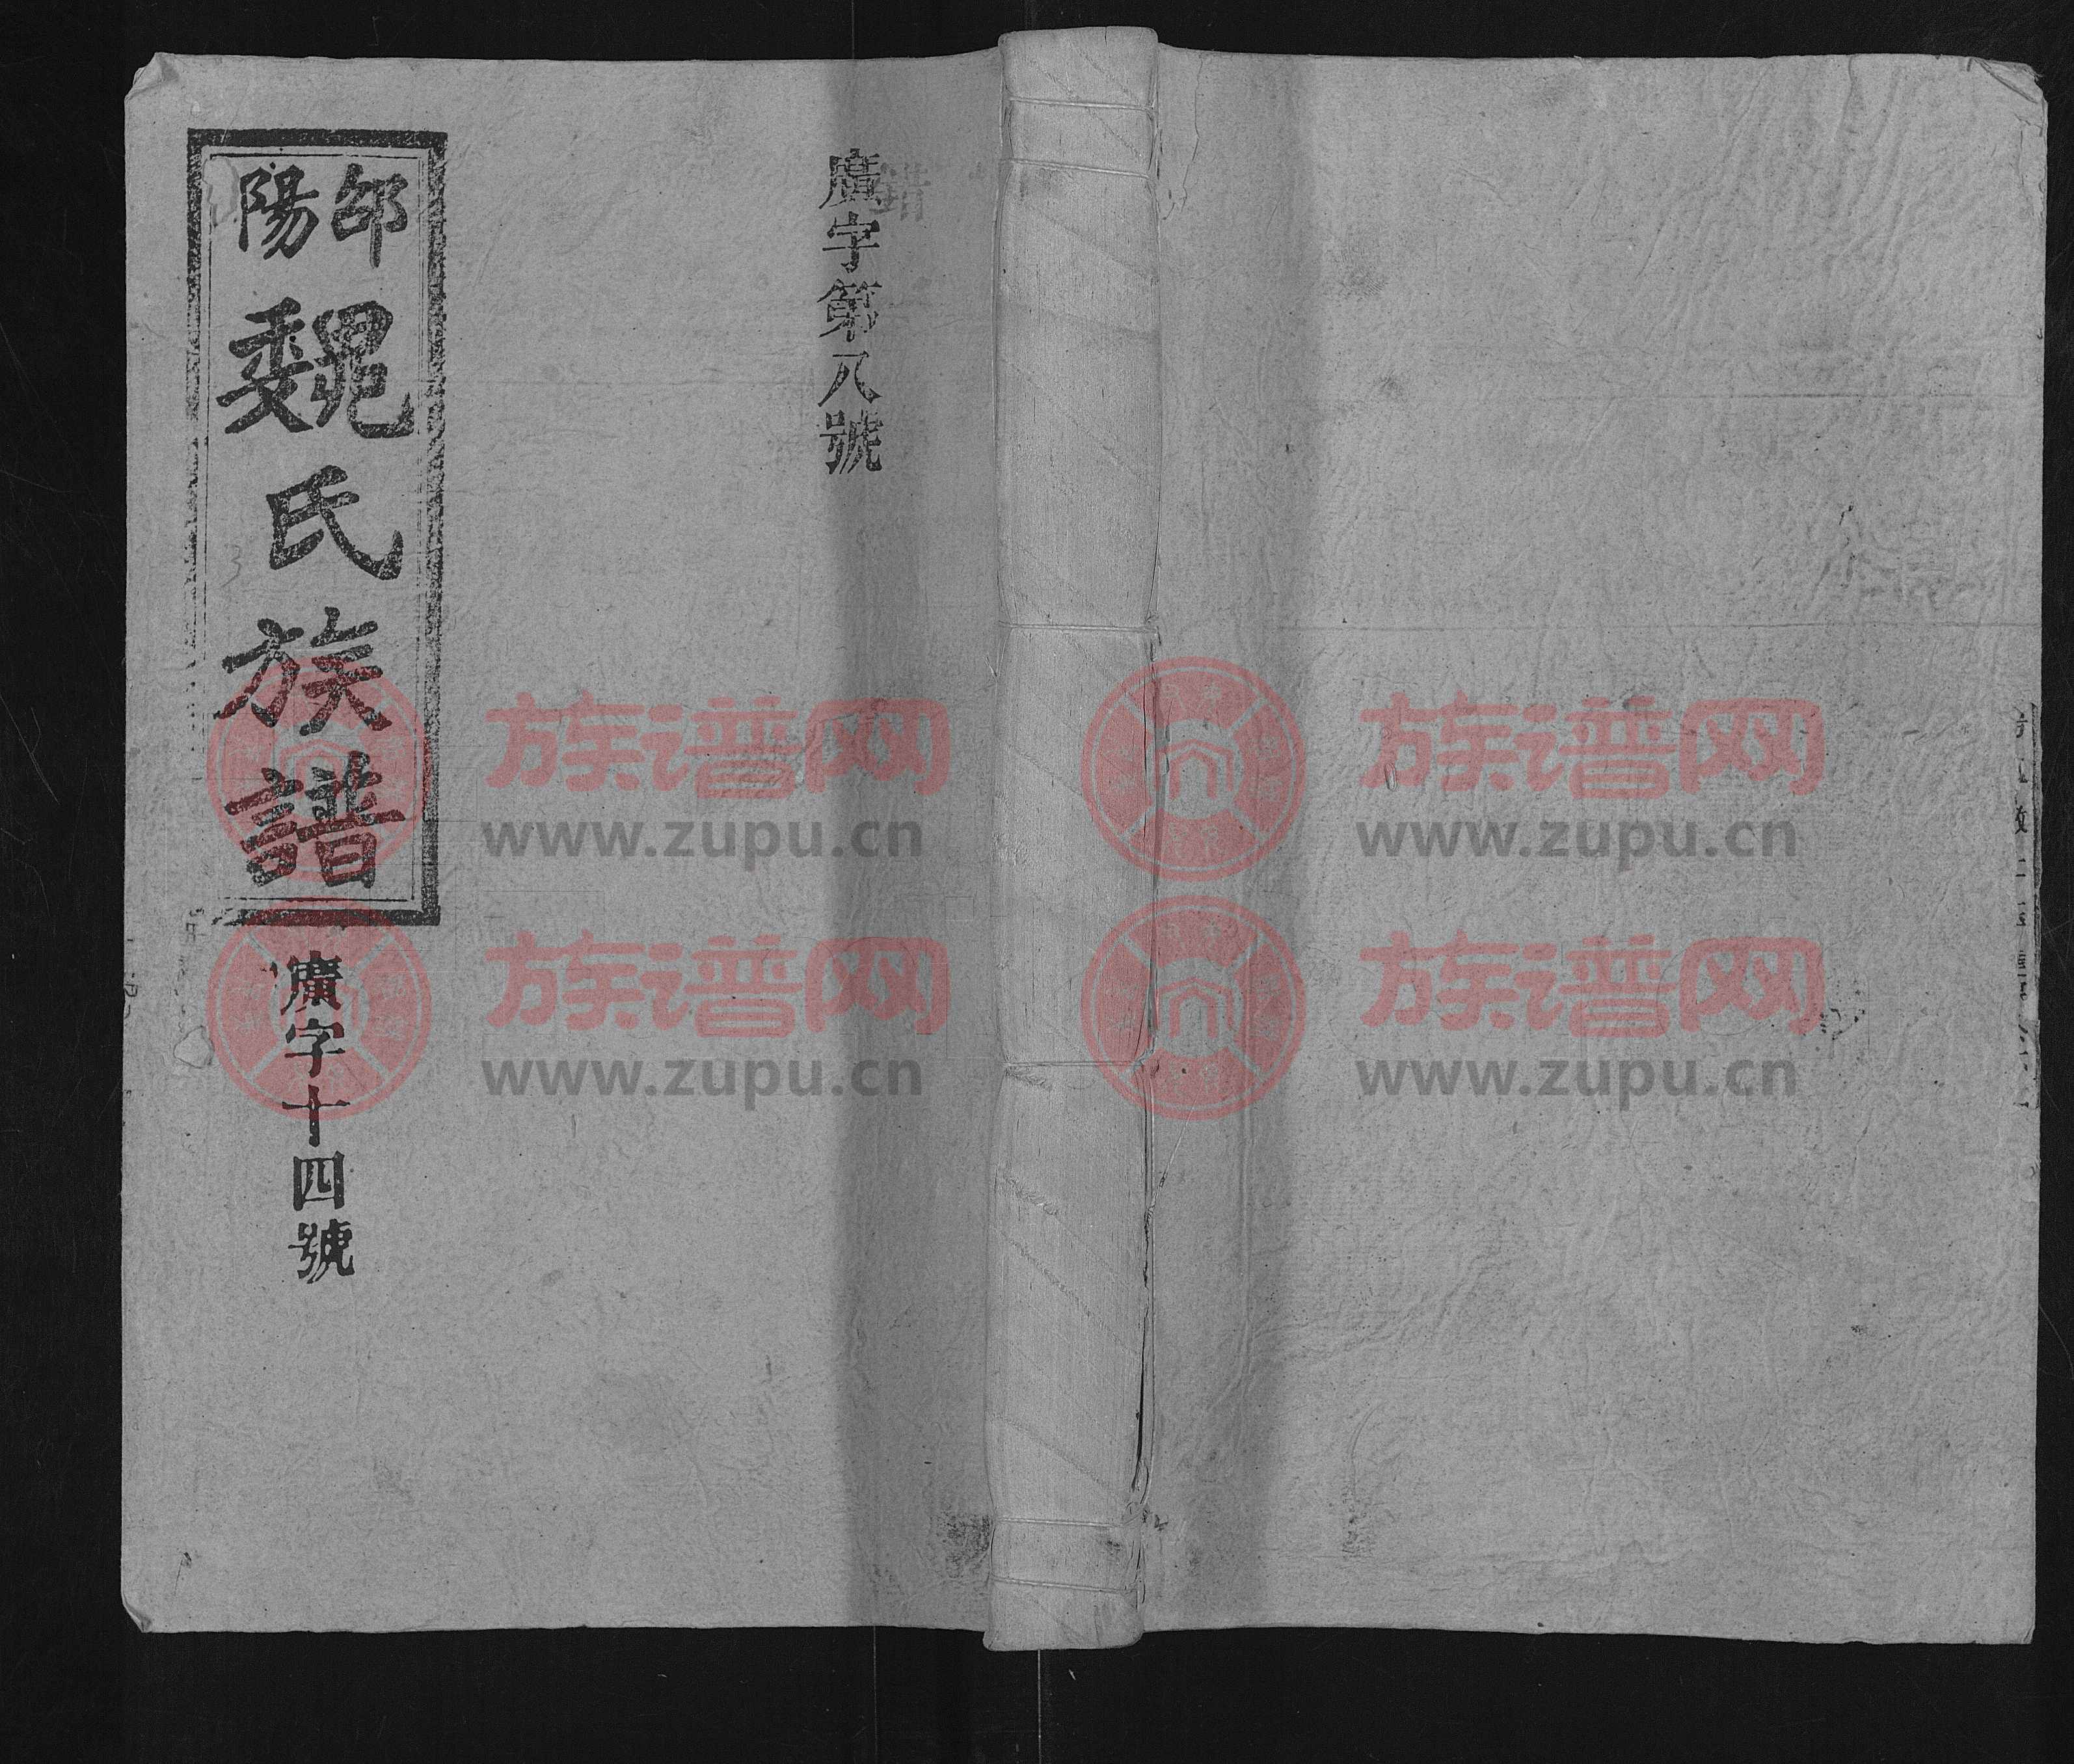 廣字第八號
邵陽
魏氏族譜
廣字十四號
族谱网
www.zupu.cn
族谱网
www.zupu.cn
族谱网
www.zupu.cn
族谱网
www.zupu.cn